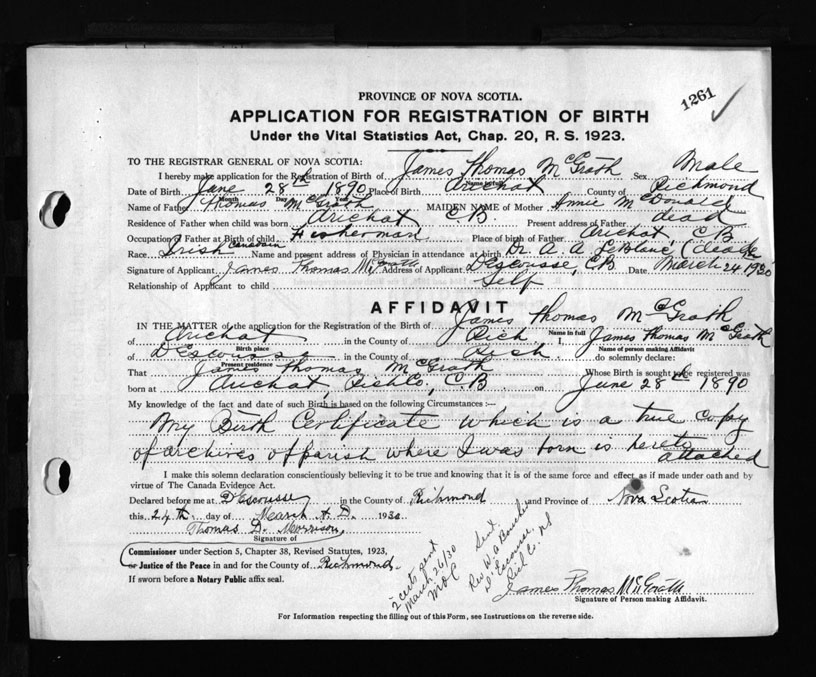 1261 ✓
PROVINCE OF NOVA SCOTIA.
APPLICATION FOR REGISTRATION OF BIRTH
Under the Vital Statistics Act, Chap. 20, R. S. 1923.
TO THE REGISTRAR GENERAL OF NOVA SCOTIA:
I hereby make application for the Registration of Birth of James Thomas McGrath Sex Male
Date of Birth June 28th 1890 Place of Birth Arichat County of Richmond
Month Day Year
Name of Father Thomas McGrath MAIDEN NAME of Mother Annie McDonald
Residence of Father when child was born Arichat C.B. Present address of Father dead
Occupation of Father at Birth of child Fisherman Place of birth of Father Arichat C B
Race Irish Canadian Name and present address of Physician in attendance at birth Dr. A. A. LeBlanc (dead)
Signature of Applicant James Thomas McGrath Address of Applicant D'Escousse, C.B. Date March 24 1930
Relationship of Applicant to child Self
AFFIDAVIT
IN THE MATTER of the application for the Registration of the Birth of James Thomas McGrath
Name in full
of Arichat in the County of Rich I, James Thomas McGrath
Birth place Name of person making Affidavit
of D'Escousse in the County of Rich. do solemnly declare:
Present residence
That James Thomas McGrath Whose Birth is sought to be registered was
born at Arichat, Rich Co., C.B. on June 28th 1890
My knowledge of the fact and date of such Birth is based on the following Circumstances :—
My Birth Certificate which is a true copy
of archives of parish where I was born is hereto
attached
I make this solemn declaration conscientiously believing it to be true and knowing that it is of the same force and effect as if made under oath and by
virtue of The Canada Evidence Act.
Declared before me at D'Escousse in the County of Richmond and Province of Nova Scotia
this 24th day of March A.D. 1930
Thomas D. Morrison
Signature of
Commissioner under Section 5, Chapter 38, Revised Statutes, 1923,
or Justice of the Peace in and for the County of Richmond.
If sworn before a Notary Public affix seal.
2 certs sent
March 26/30
Sent
Rev W A
D'Escousse
Rich C. NS
James Thomas McGrath
Signature of Person making Affidavit.
For Information respecting the filling out of this Form, see Instructions on the reverse side.